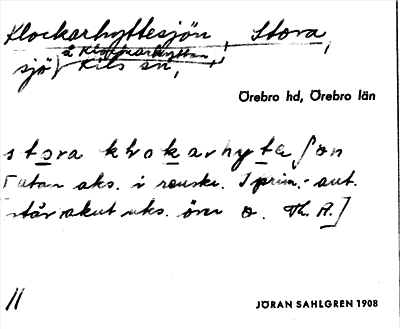 Klockarhyttesjön, Stora,
å Klockarhyttan
sjö, Kils sn,
Örebro hd, Örebro län
stora klokarhyta ʃøn
[utan aks. i renskr. I prim.-ant.
står akut aks. över ø. Th. A.]
11
JÖRAN SAHLGREN 1908